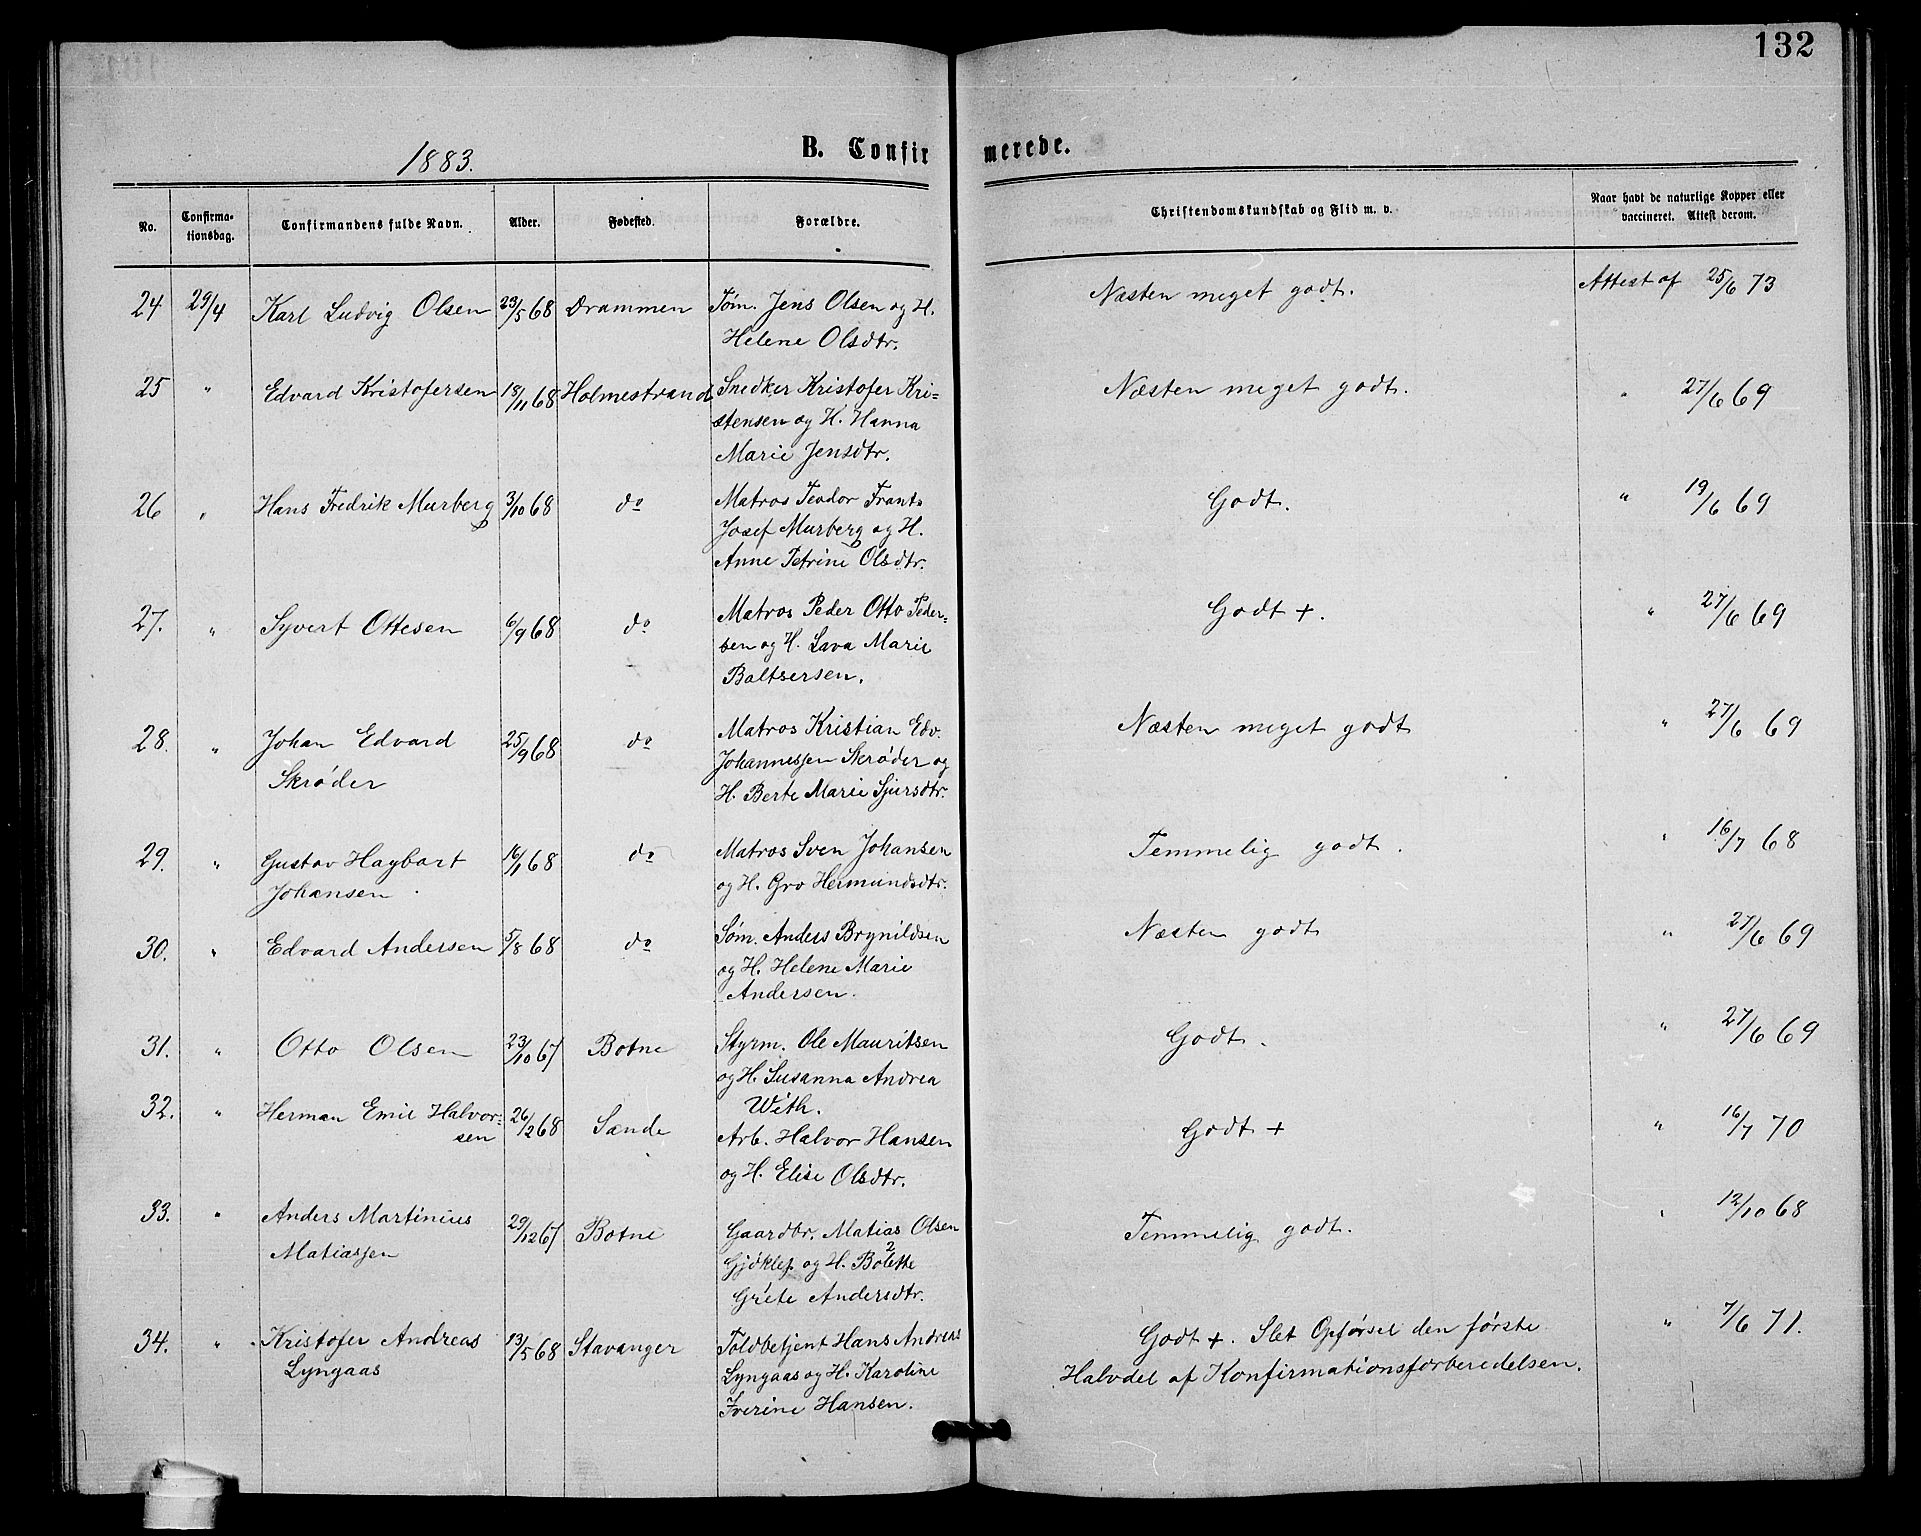 132
1883.
B. Confir merede.
No.
Confirma-
tionsdag.
Confirmandens fulde Navn.
Alder.
Fødested.
Forældre.
Christendomskundskab og Flid m. v.
Naar havt de naturlige Kopper eller
vaccineret. Attest derom.
24 29/4 Karl Ludvig Olsen 23/5 68 Drammen Tøm. Jens Olsen og H. Næsten meget godt. Attest af 25/6 73
Helene Olsdtr.
25 " Edvard Kristofersen 18/11 68 Holmestrand Snedker Kristofer Kri- Næsten meget godt. " 27/6 69
stensen og H. Hanna
Marie Jensdtr.
26 " Hans Fredrik Murberg 3/10 68 do Matros Teodor Frants Godt. " 19/6 69
Josef Murberg og H.
Anne Petrine Olsdtr.
27. " Syvert Ottesen 6/9 68 do Matros Peder Otto Peder- Godt +. " 27/6 69
sen og H. Lava Marie
Baltsersen.
28. " Johan Edvard 25/9 68 do Matros Kristian Edv. Næsten meget godt " 27/6 69
Skrøder Johannessen Skrøder og
H. Berte Marie Sjursdtr.
29. " Gustav Hagbart 16/1 68 do Matros Sven Johansen Temmelig godt. " 16/7 68
Johansen og H. Gro Hermundsdtr.
30. " Edvard Andersen 5/8 68 do Søm. Anders Brynildsen Næsten godt " 27/6 69
og H. Helene Marie
Andersen.
31. " Otto Olsen 23/10 67 Botne Styrm. Ole Mauritsen Godt. " 27/6 69
og H. Susanna Andrea
With.
32. " Herman Emil Halvor- 26/2 68 Sande Arb. Halvor Hansen Godt + " 16/7 70
sen og H. Elise Olsdtr.
33. " Anders Martinius 29/12 67 Botne Gaardbr. Matias Olsen Temmelig godt. " 12/10 68
Matiassen Gjøklep og H. Bolette
Grete Andersdtr.
34. " Kristofer Andreas 13/5 68 Stavanger Toldbetjent Hans Andreas Godt +. Slet Opførsel den første " 7/6 71.
Lyngaas Lyngaas og H. Karoline Halvdel af Konfirmationsforberedelsen.
Iverine Hansen.